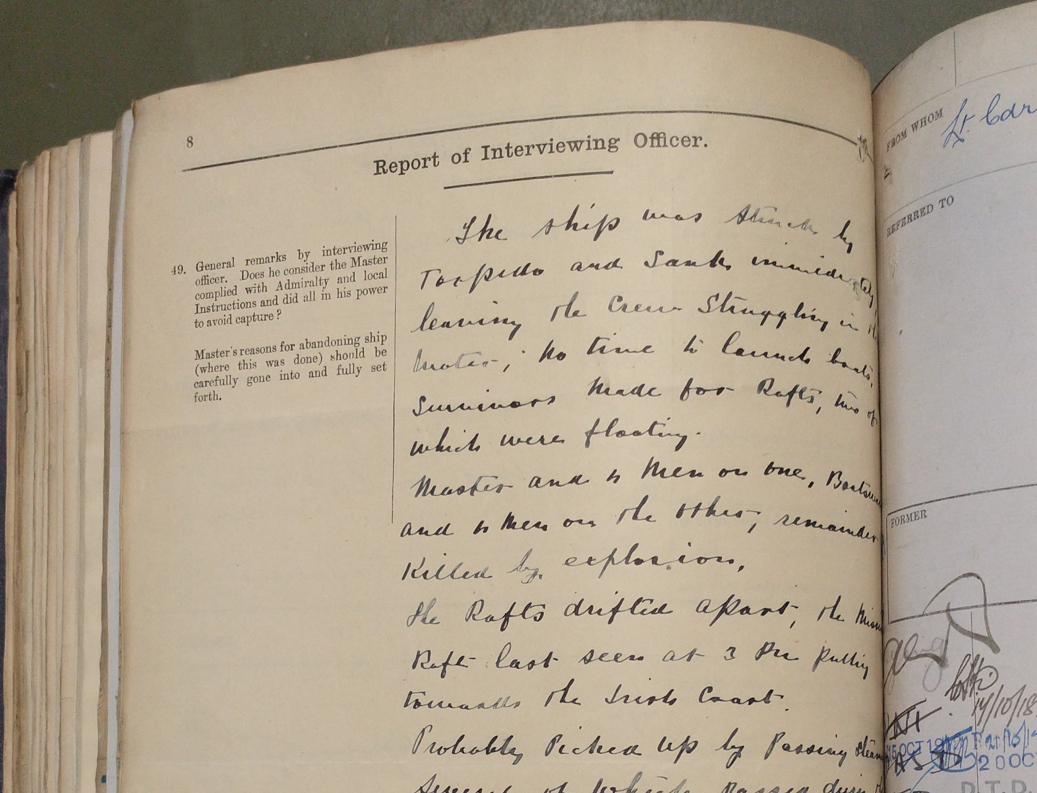 8
Report of Interviewing Officer.
49. General remarks by interviewing
officer. Does he consider the Master
complied with Admiralty and local
Instructions and did all in his power
to avoid capture?
Master's reasons for abandoning ship
(where this was done) should be
carefully gone into and fully set
forth.
The ship was struck by
Torpedo and Sank immediately,
leaving the Crew Struggling in the
Water; no time to launch boats.
Survivors made for Rafts, two of
which were floating.
Master and 6 Men on one, Boatswain
and 6 Men on the other, remainder
Killed by explosion,
The Rafts drifted apart, the
Raft last seen at 3 Pm Pulling
towards the Irish Coast.
Probably Picked up by Passing
Several of which Passed
FROM WHOM
Lt Cdr
REFERRED TO
FORMER
14/10/18